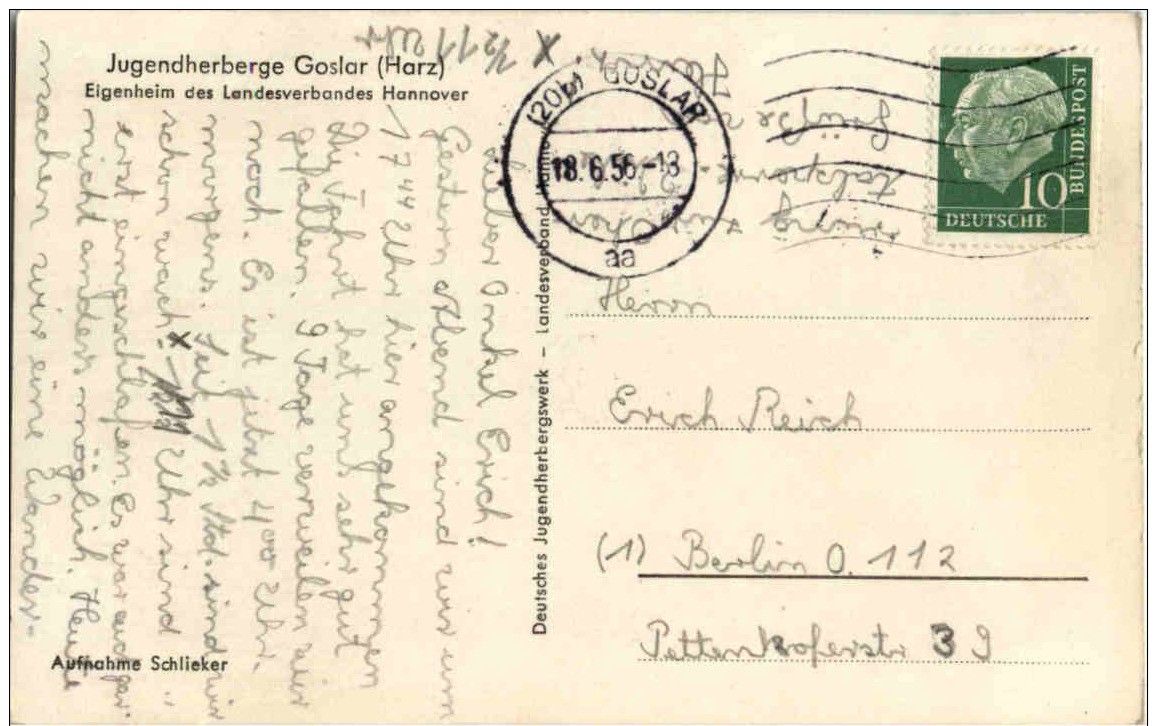 Jugendherberge Goslar (Harz)
Eigenheim des Landesverbandes Hannover
Lieber Onkel Erich!
Gestern Abend sind wir um
17 44 Uhr hier angekommen
Die Fahrt hat uns sehr gut
gefallen. 9 Tage verweilen wir
noch. Es ist jetzt 4 00 Uhr.
morgens. Seit 1 ½ Std. sind wir
schon wach. x Uhr sind
erst eingeschlafen. Es war
nicht anders möglich. Heute
machen wir eine Wander-
x ½ 11 Uhr
Aufnahme Schlieker
Deutsches Jugendherbergswerk – Landesverband Hannover
(20b) GOSLAR
18.6.56-18
aa
10
DEUTSCHE
BUNDESPOST
Herrn
Erich Reich
(1) Berlin O. 112
Pettenkoferstr 39